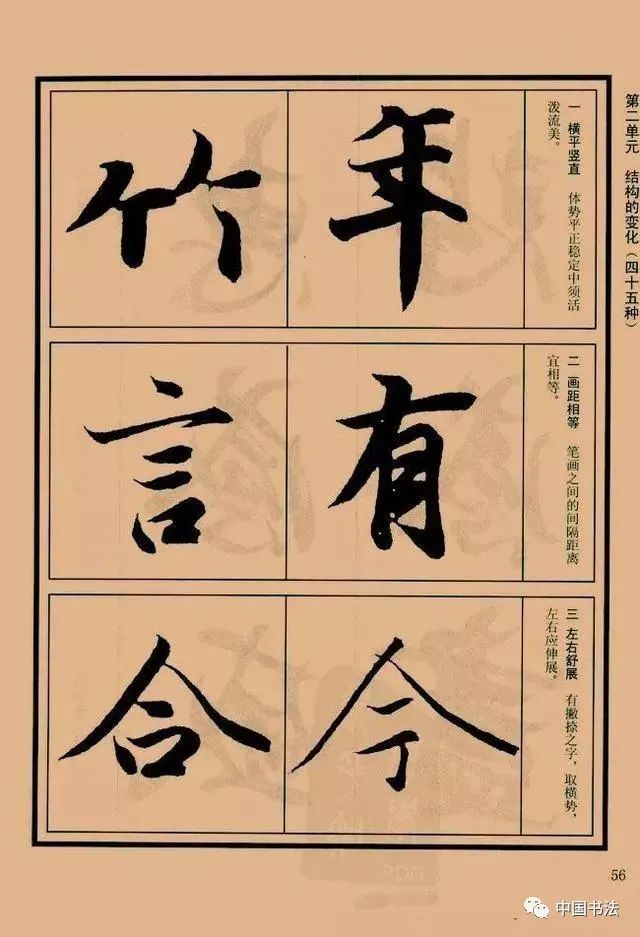 第二单元 结构的变化（四十五种）
一 横平竖直 体势平正稳定中须活
泼流美。
年
竹
二 画距相等 笔画之间的间隔距离
宜相等。
有
言
三 左右舒展 有撇捺之字，取横势，
左右应伸展。
今
合
56
中国书法